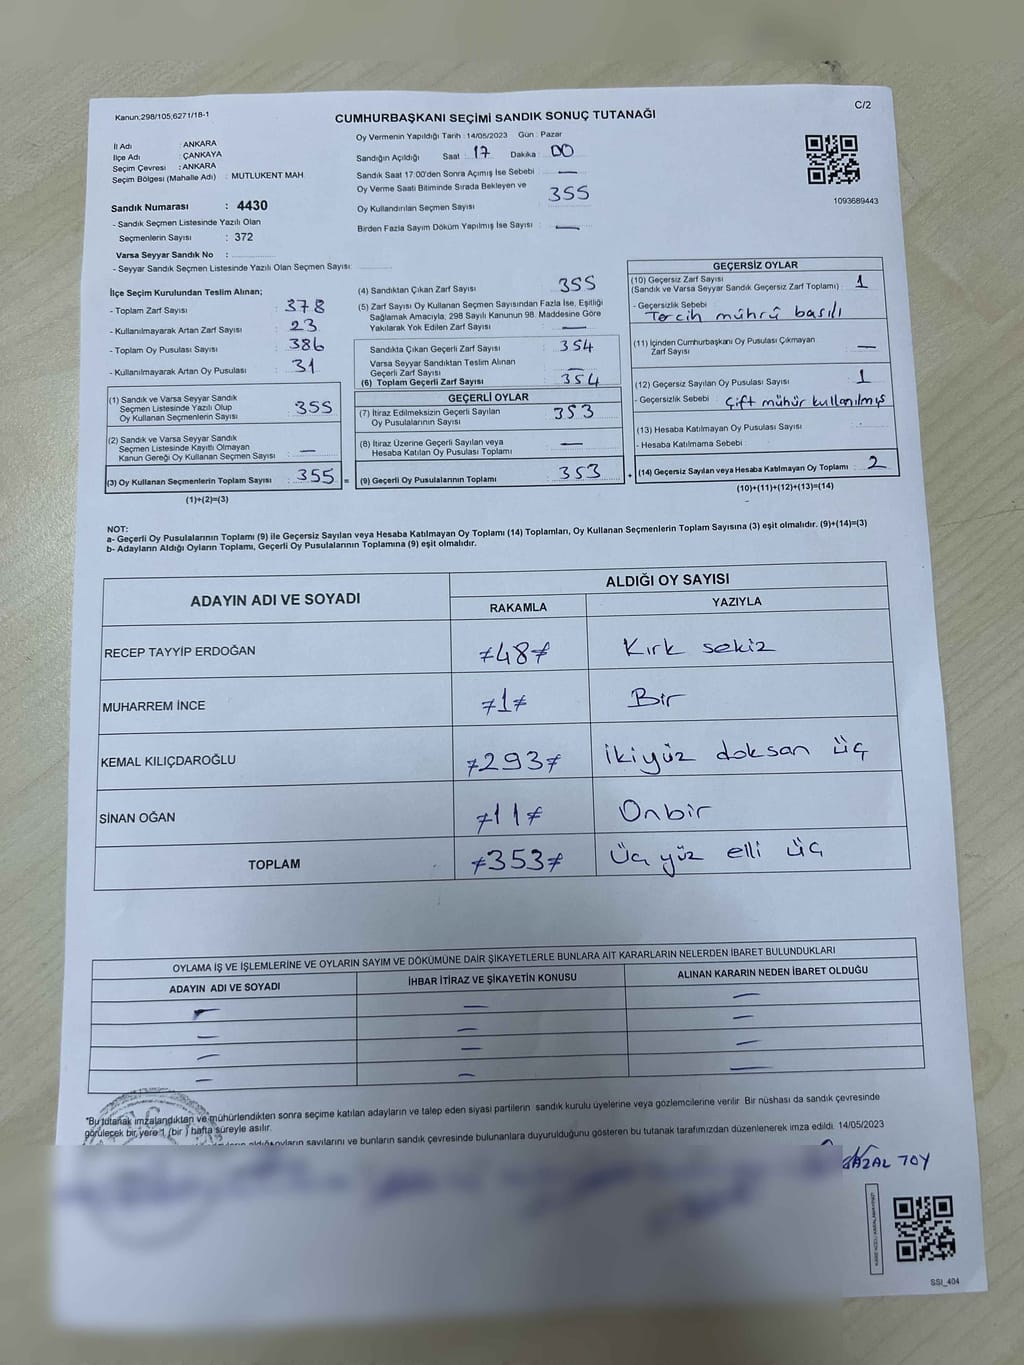 Kanun:298/105,6271/18-1
C/2
CUMHURBAŞKANI SEÇİMİ SANDIK SONUÇ TUTANAĞI
İl Adı : ANKARA
İlçe Adı : ÇANKAYA
Seçim Çevresi : ANKARA
Seçim Bölgesi (Mahalle Adı) : MUTLUKENT MAH.
Sandık Numarası : 4430
- Sandık Seçmen Listesinde Yazılı Olan
Seçmenlerin Sayısı : 372
Varsa Seyyar Sandık No :
- Seyyar Sandık Seçmen Listesinde Yazılı Olan Seçmen Sayısı:
Oy Vermenin Yapıldığı Tarih : 14/05/2023 Gün : Pazar
Sandığın Açıldığı Saat : 17 Dakika : 00
Sandık Saat 17:00'den Sonra Açımış İse Sebebi : —
Oy Verme Saati Bitiminde Sırada Bekleyen ve
Oy Kullandırılan Seçmen Sayısı : 355
Birden Fazla Sayım Döküm Yapılmış İse Sayısı : —
1093689443
İlçe Seçim Kurulundan Teslim Alınan;
- Toplam Zarf Sayısı : 378
- Kullanılmayarak Artan Zarf Sayısı : 23
- Toplam Oy Pusulası Sayısı : 386
- Kullanılmayarak Artan Oy Pusulası : 31
(1) Sandık ve Varsa Seyyar Sandık
Seçmen Listesinde Yazılı Olup
Oy Kullanan Seçmenlerin Sayısı : 355
(2) Sandık ve Varsa Seyyar Sandık
Seçmen Listesinde Kayıtlı Olmayan
Kanun Gereği Oy Kullanan Seçmen Sayısı : —
(3) Oy Kullanan Seçmenlerin Toplam Sayısı : 355 =
(1)+(2)=(3)
(4) Sandıktan Çıkan Zarf Sayısı : 355
(5) Zarf Sayısı Oy Kullanan Seçmen Sayısından Fazla İse, Eşitliği
Sağlamak Amacıyla, 298 Sayılı Kanunun 98. Maddesine Göre
Yakılarak Yok Edilen Zarf Sayısı : —
Sandıkta Çıkan Geçerli Zarf Sayısı : 354
Varsa Seyyar Sandıktan Teslim Alınan
Geçerli Zarf Sayısı : —
(6) Toplam Geçerli Zarf Sayısı : 354
GEÇERLİ OYLAR
(7) İtiraz Edilmeksizin Geçerli Sayılan
Oy Pusulalarının Sayısı : 353
(8) İtiraz Üzerine Geçerli Sayılan veya
Hesaba Katılan Oy Pusulası Toplamı : —
(9) Geçerli Oy Pusulalarının Toplamı : 353 +
GEÇERSİZ OYLAR
(10) Geçersiz Zarf Sayısı
(Sandık ve Varsa Seyyar Sandık Geçersiz Zarf Toplamı) : 1
- Geçersizlik Sebebi
: Tercih mührü basılı
(11) İçinden Cumhurbaşkanı Oy Pusulası Çıkmayan
Zarf Sayısı : —
(12) Geçersiz Sayılan Oy Pusulası Sayısı : 1
- Geçersizlik Sebebi : Çift mühür kullanılmış
(13) Hesaba Katılmayan Oy Pusulası Sayısı :
- Hesaba Katılmama Sebebi :
(14) Geçersiz Sayılan veya Hesaba Katılmayan Oy Toplamı : 2
(10)+(11)+(12)+(13)=(14)
NOT:
a- Geçerli Oy Pusulalarının Toplamı (9) ile Geçersiz Sayılan veya Hesaba Katılmayan Oy Toplamı (14) Toplamları, Oy Kullanan Seçmenlerin Toplam Sayısına (3) eşit olmalıdır. (9)+(14)=(3)
b- Adayların Aldığı Oyların Toplamı, Geçerli Oy Pusulalarının Toplamına (9) eşit olmalıdır.
ADAYIN ADI VE SOYADI
ALDIĞI OY SAYISI
RAKAMLA YAZIYLA
RECEP TAYYİP ERDOĞAN ≠48≠ Kırk sekiz
MUHARREM İNCE ≠1≠ Bir
KEMAL KILIÇDAROĞLU ≠293≠ ikiyüz doksan üç
SİNAN OĞAN ≠11≠ Onbir
TOPLAM ≠353≠ Üç yüz elli üç
OYLAMA İŞ VE İŞLEMLERİNE VE OYLARIN SAYIM VE DÖKÜMÜNE DAİR ŞİKAYETLERLE BUNLARA AİT KARARLARIN NELERDEN İBARET BULUNDUKLARI
ADAYIN ADI VE SOYADI İHBAR İTİRAZ VE ŞİKAYETİN KONUSU ALINAN KARARIN NEDEN İBARET OLDUĞU
— — —
— — —
— — —
— — —
*Bu tutanak imzalandıktan ve mühürlendikten sonra seçime katılan adayların ve talep eden siyasi partilerin sandık kurulu üyelerine veya gözlemcilerine verilir. Bir nüshası da sandık çevresinde
görülecek bir yere 1 (bir) hafta süreyle asılır.
aldığı oyların sayılarını ve bunların sandık çevresinde bulunanlara duyurulduğunu gösteren bu tutanak tarafımızdan düzenlenerek imza edildi. 14/05/2023
TOY
SSI_404